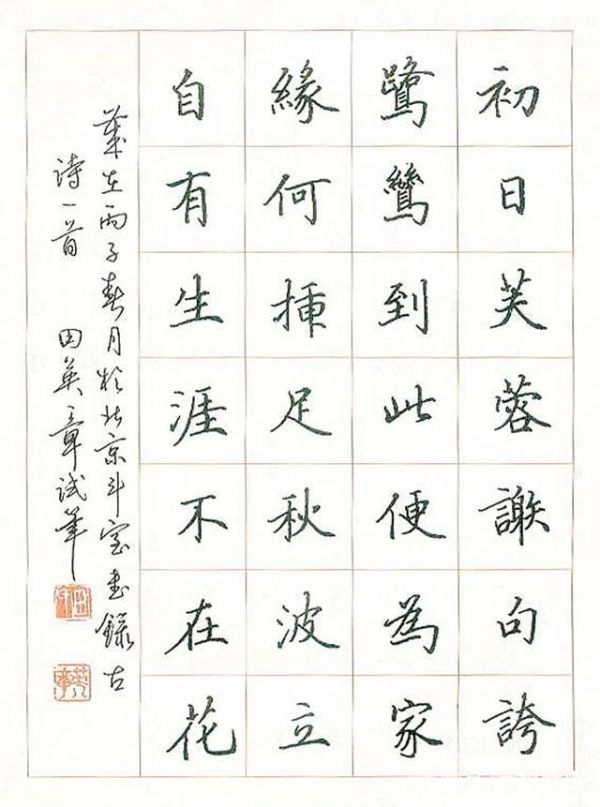 初日芙蓉謝句誇
鷺鷥到此便為家
緣何揷足秋波立
自有生涯不在花
歲在丙子春月於北京斗室書錄古
诗一首 田英章试笔